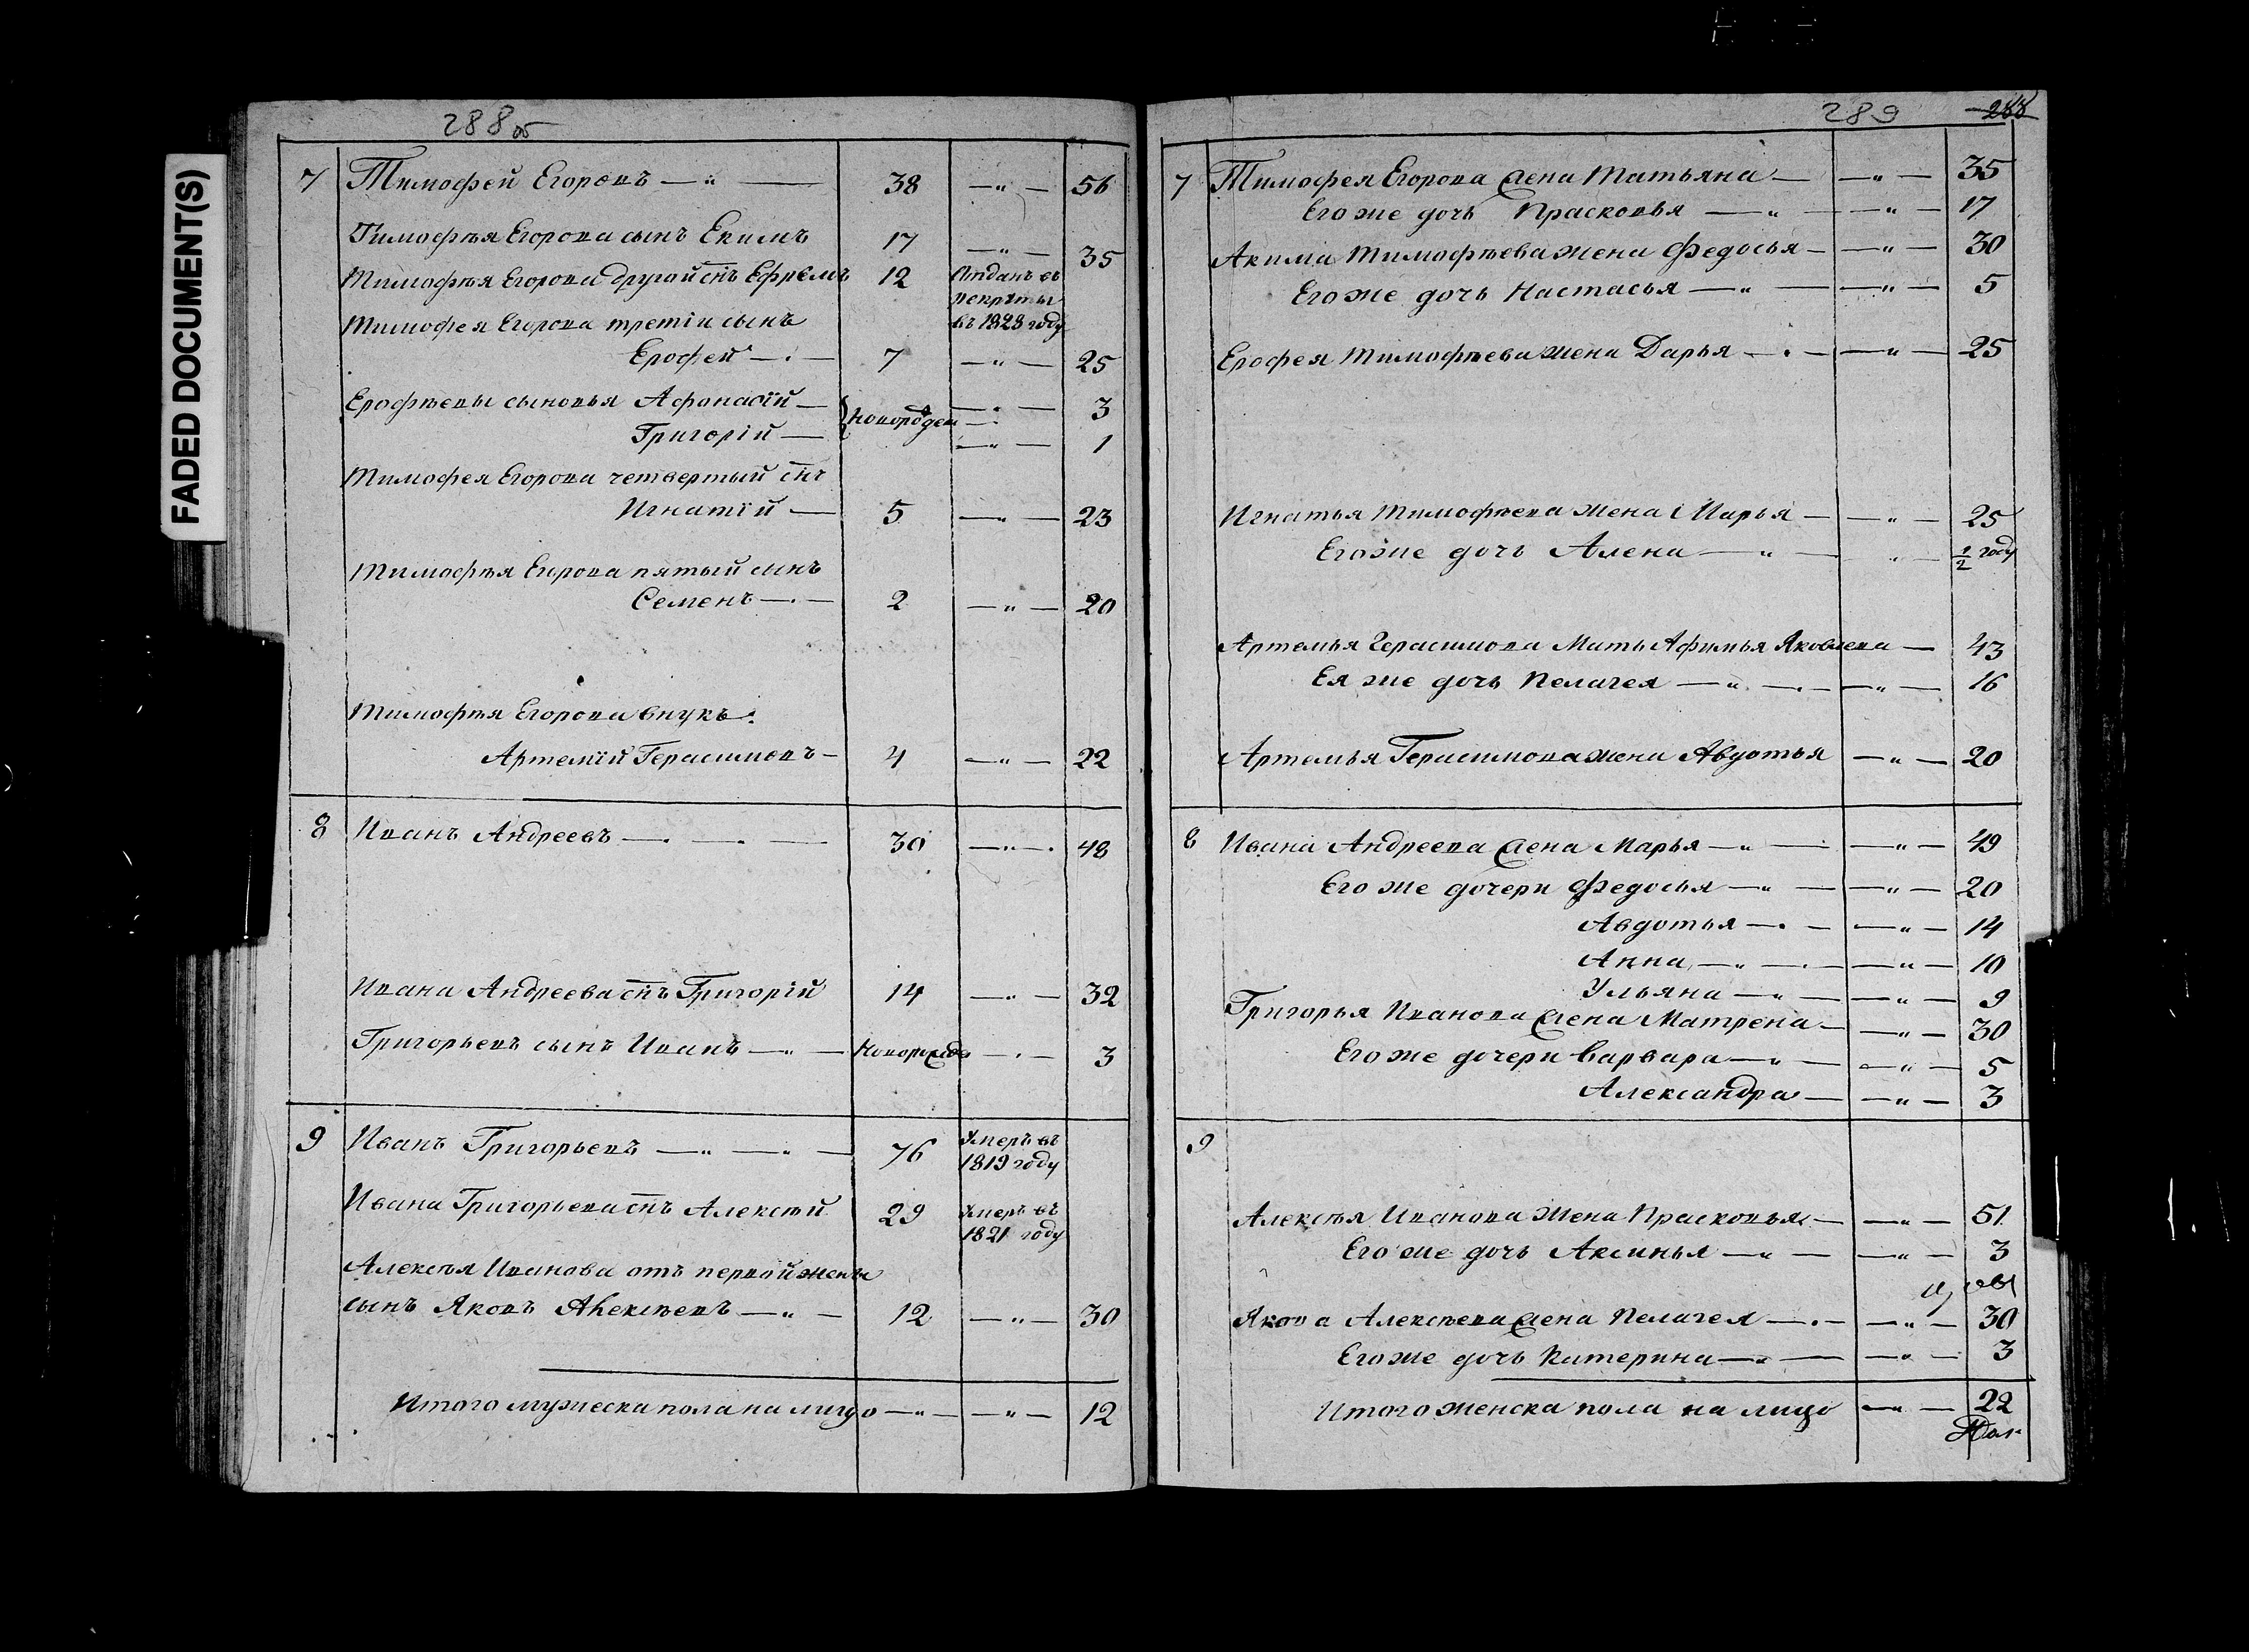 FADED DOCUMENT(S)
288 об
7 Тимофей Егоровъ — „ — 38 — „ — 56
Тимофѣя Егорова сынъ Екимъ 17 — „ — 35
Тимофѣя Егорова другой снъ Ефремъ 12 Отданъ въ
рекруты
Тимофея Егорова третiи сынъ въ 1828 году
Ерофей — . — 7 — „ — 25
Ерофѣевы сыновья Афонасiй — новорожден — . — 3
Григорiй — — „ — 1
Тимофея Егорова четвертый снъ
Игнатiй — 5 — „ — 23
Тимофѣя Егорова пятый сынъ
Семенъ — . — 2 — „ — 20
Тимофѣя Егорова внукъ
Артемiй Герасимовъ — 4 — „ — 22
8 Иванъ Андреевъ — . — . — 30 — „ — . 48
Ивана Андреева снъ Григорiй 14 — „ — 32
Григорьевъ сынъ Иванъ — „ — новорожде — . — 3
9 Иванъ Григорьевъ — „ — „ — 76 Умеръ въ
1819 году
Ивана Григорьева снъ Алексѣй 29 Умеръ въ
1821 году
Алексѣя Иванова отъ первой жены
сынъ Яковъ Алексѣевъ — „ — 12 — „ — 30
Итого мужеска пола на лицо — „ — — „ — 12
289 288
7 Тимофея Егорова жена Татьяна — — „ — 35
Его же дочь Прасковья — „ — — „ — 17
Акима Тимофѣева жена Федосья — — „ — 30
Его же дочь Настасья — „ — — „ — 5
Ерофея Тимофѣева жена Дарья — . — — „ — 25
Игнатья Тимофѣева жена Марья — — „ — 25
Его же дочь Алена — „ — „ — 1/2 году
Артемья Герасимова Мать Афимья Яковлева — 43
Ея же дочь Пелагея — „ — . — — „ — 16
Артемья Герасимова жена Авдотья — „ — 20
8 Ивана Андреева жена Марья — „ — — „ — 49
Его же дочери Федосья — „ — — „ — 20
Авдотья — . — — „ — 14
Анна — „ — . — — „ — 10
Ульяна — „ — — „ — 9
Григорья Иванова жена Матрена — — „ — 30
Его же дочери Варвара — „ — — „ — 5
Александра — — „ — 3
9
Алексѣя Иванова жена Прасковья — — „ — 51
Его же дочь Аксинья — „ — — „ — 3
Якова Алексѣева жена Пелагея — . — — „ — 30
Его же дочь Катерина — „ — — „ — 3
Итого женска пола на лицо — „ — 22